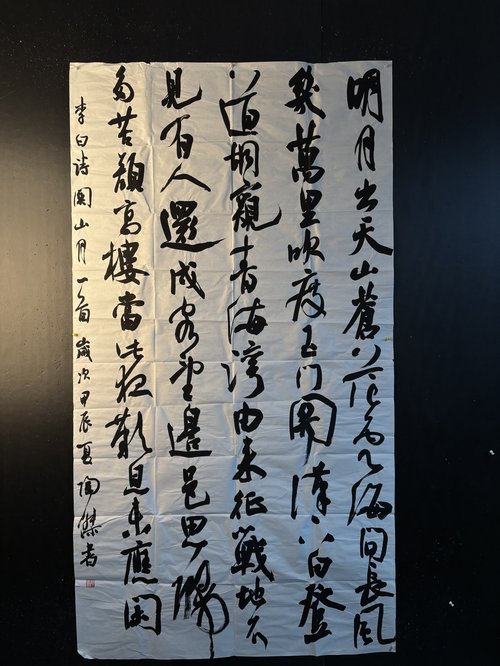 明月出天山蒼茫雲海間長風
幾萬里吹度玉門關漢下白登
道胡窺青海灣由来征戰地不
見有人還戍客望邊邑思歸
多苦顏高樓當此夜歎息未應閑
李白詩關山月一首歲次甲辰夏陶傑書